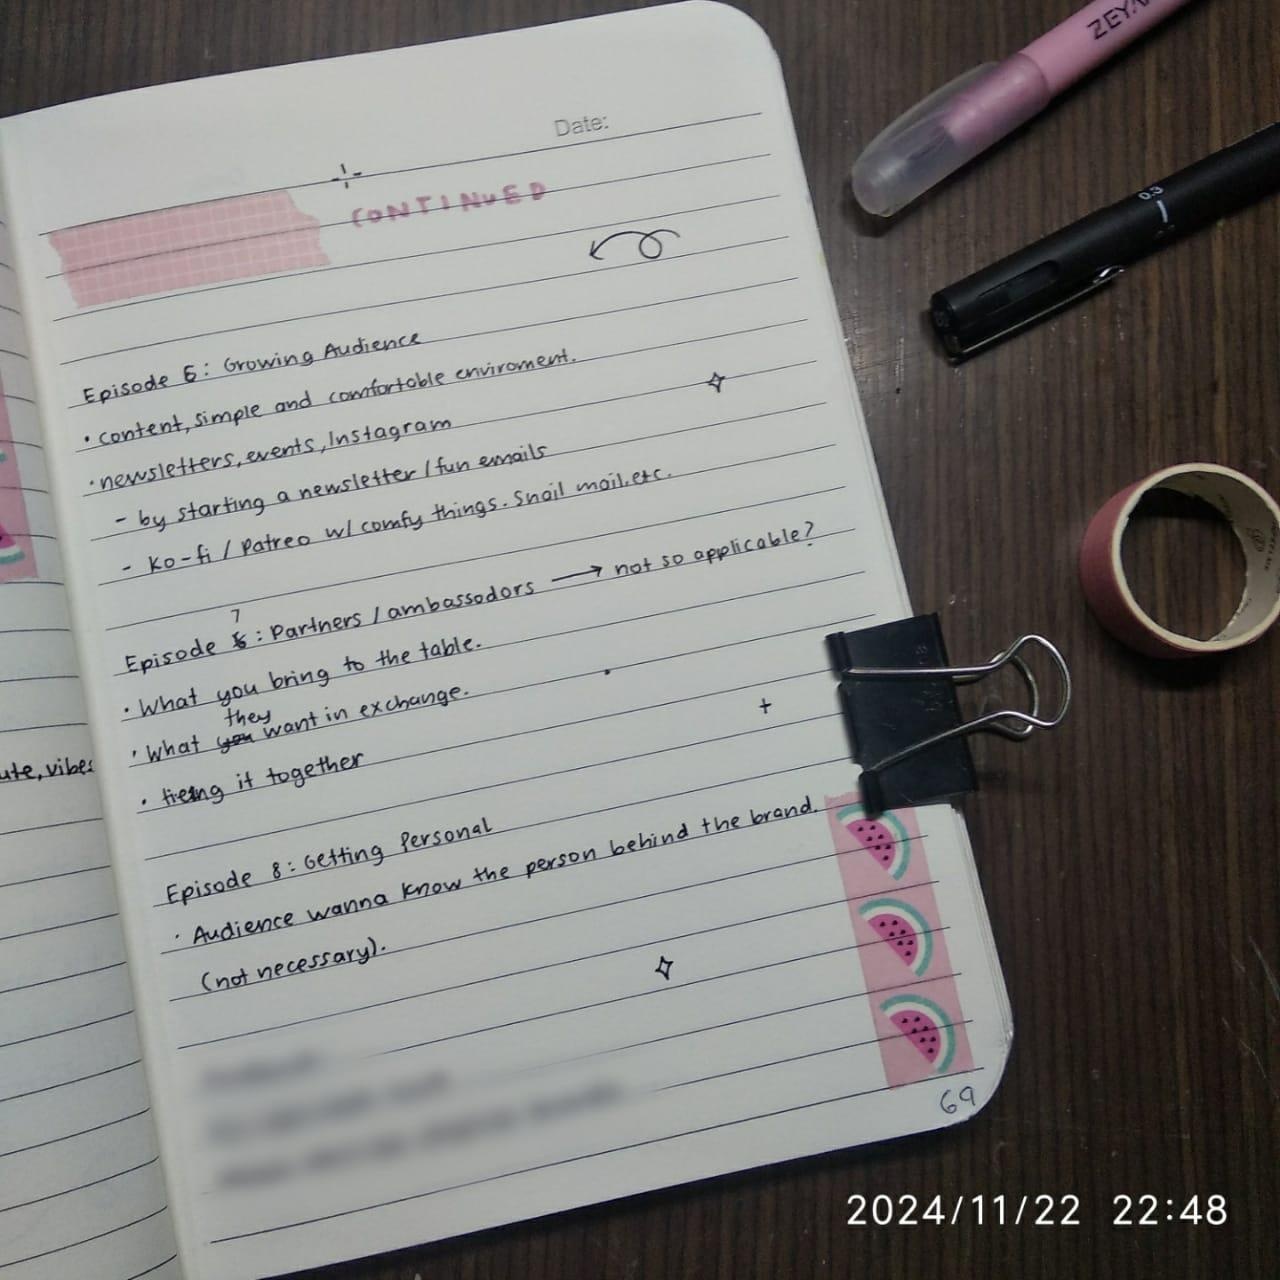 Date:
CONTINUED
Episode 6: Growing Audience
• content, simple and comfortable enviroment.
• newsletters, events, Instagram
- by starting a newsletter / fun emails
- Ko-fi / Patreo w/ comfy things. Snail mail. etc.
Episode 7: Partners / ambassadors → not so applicable?
• What you bring to the table.
• What they want in exchange.
• tieing it together
Episode 8: Getting Personal
• Audience wanna know the person behind the brand.
(not necessary).
69
ute, vibes
ZEYA
0.3
2024/11/22 22:48